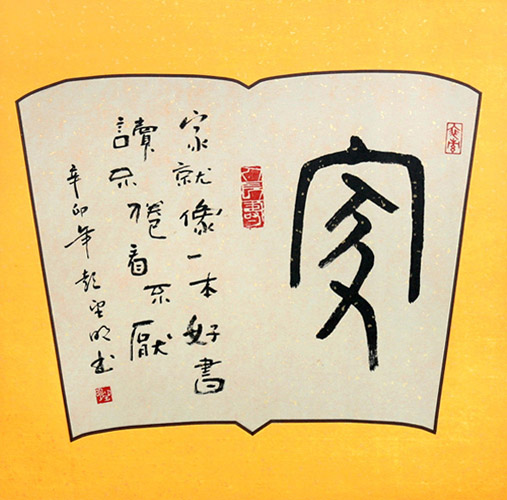 家
家就像一本好書
讀不倦看不厭
辛卯年彭望明書